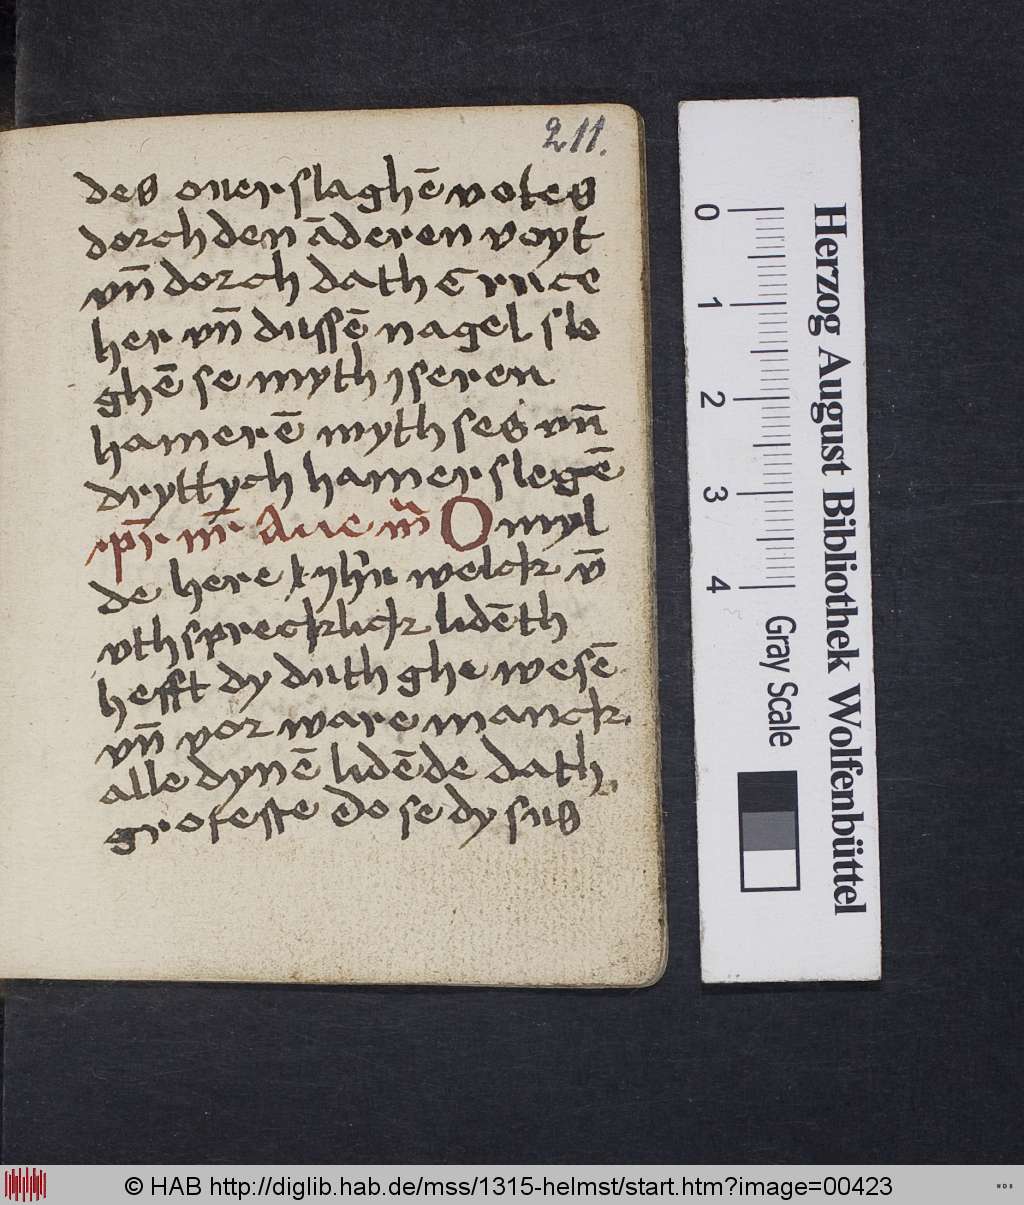 211.
des ouer slaghē votes
dorch den ā deren voyt
vn̄ dorch dath Cruce
her vn̄ dussē nagel slo
ghē se myth iseren
hamerē myth ses vn̄
dryttych hamer slegē
pr̄ nr̄ Aue m̄ O myl
de here ihu welck v̄
vth sprecklick lidēth
hefft dy duth ghe wesē
vn̄ vor ware manck
alle dynē lidēde dath
groteste do se dy sus
0
1
2
3
4
Gray Scale
Herzog August Bibliothek Wolfenbüttel
© HAB http://diglib.hab.de/mss/1315-helmst/start.htm?image=00423